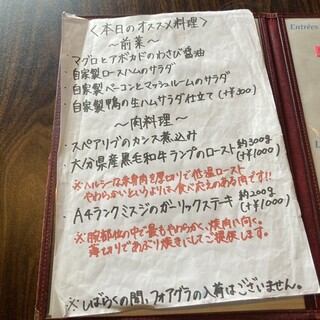 〈本日のオススメ料理〉
～前菜～
・マグロとアボカドのわさび醤油
・自家製ロースハムのサラダ
・自家製ベーコンとマッシュルームのサラダ
・自家製鴨の生ハムサラダ仕立て(+¥300)
～肉料理～
・スペアリブのカシス煮込み
・大分県産黒毛和牛ランプのロースト 約300g (+¥1000)
※ヘルシーな赤身肉を厚切りで低温ロースト
やわらかいというよりも、食べごたえのある肉です!!
・A4ランクミスジのガーリックステーキ 約200g (+¥1000)
※腕部位の中で最もやわらかく、焼肉に向く。
薄切りであぶり焼きにしてご提供します。
※しばらくの間、フォアグラの入荷はございません。
Entrées